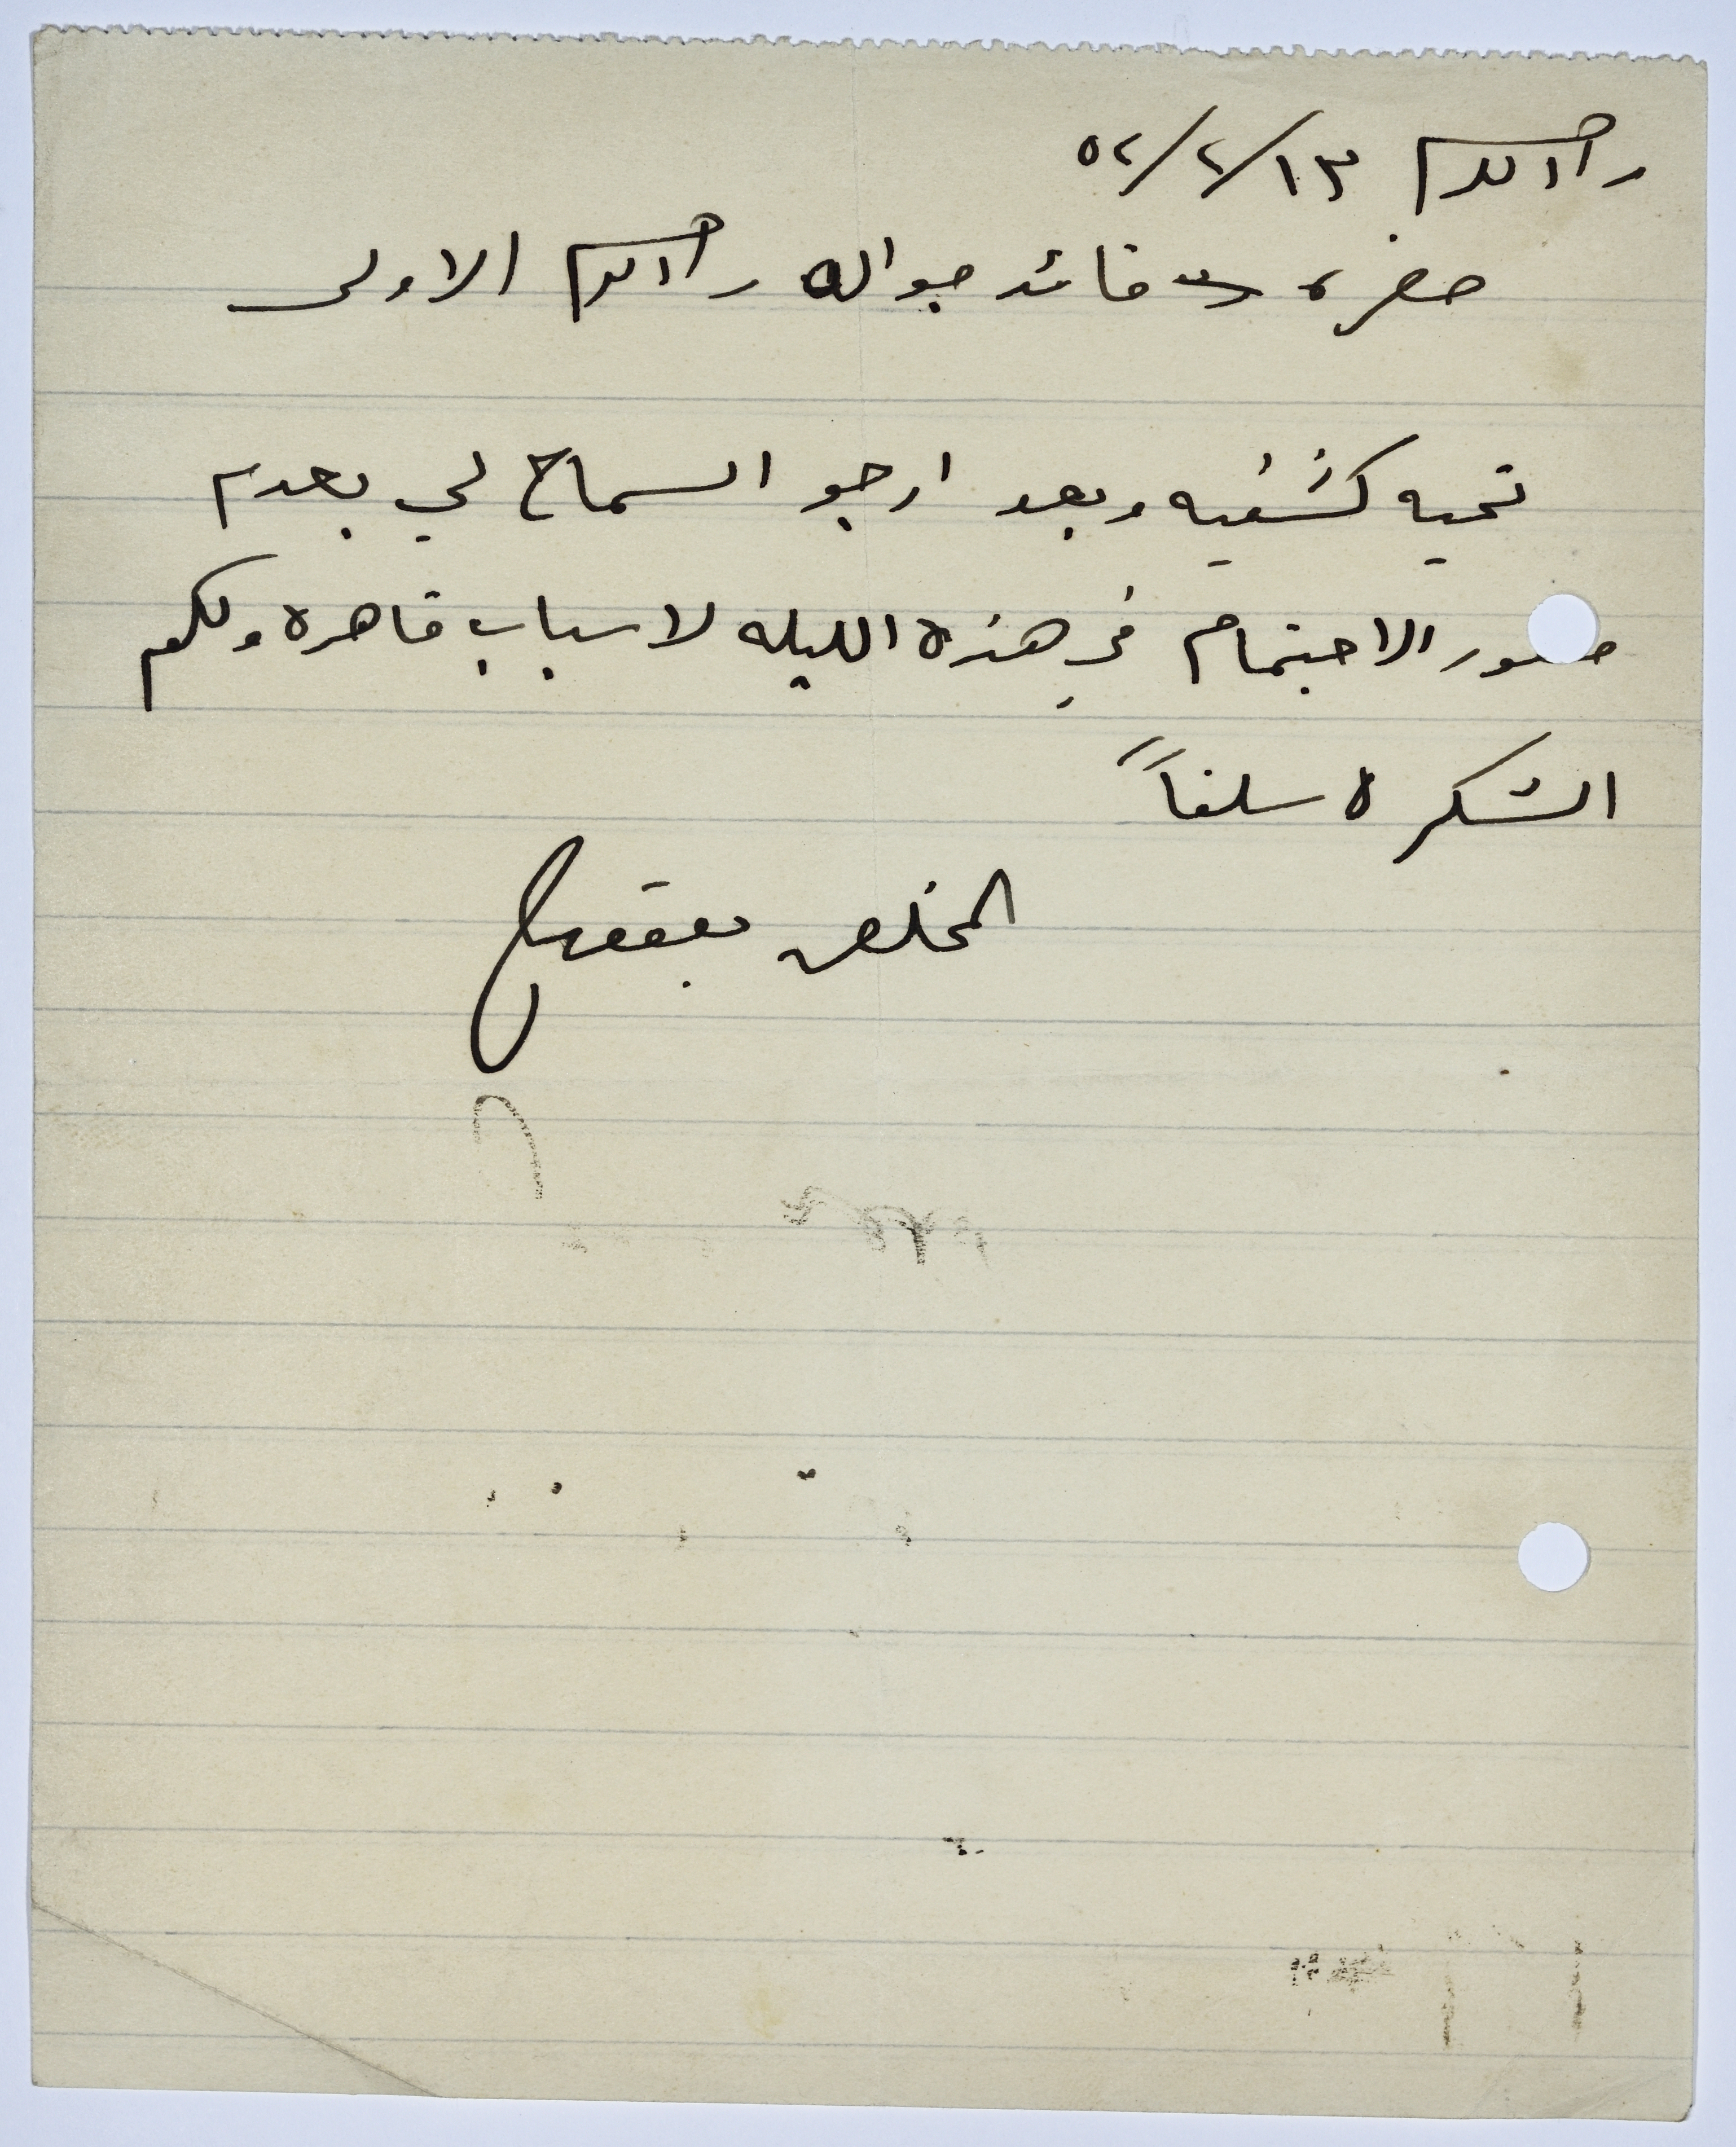 رام الله ١٣/٢/٥٢
حضرة قائد جوالة رام الله الاولى
تحيه كشفيه وبعد ارجو السماح لي بعدم
حضور الاجتماع في هذه الليله لاسباب قاهره ولكم
الشكر سلفاً
المخلص يعقوب